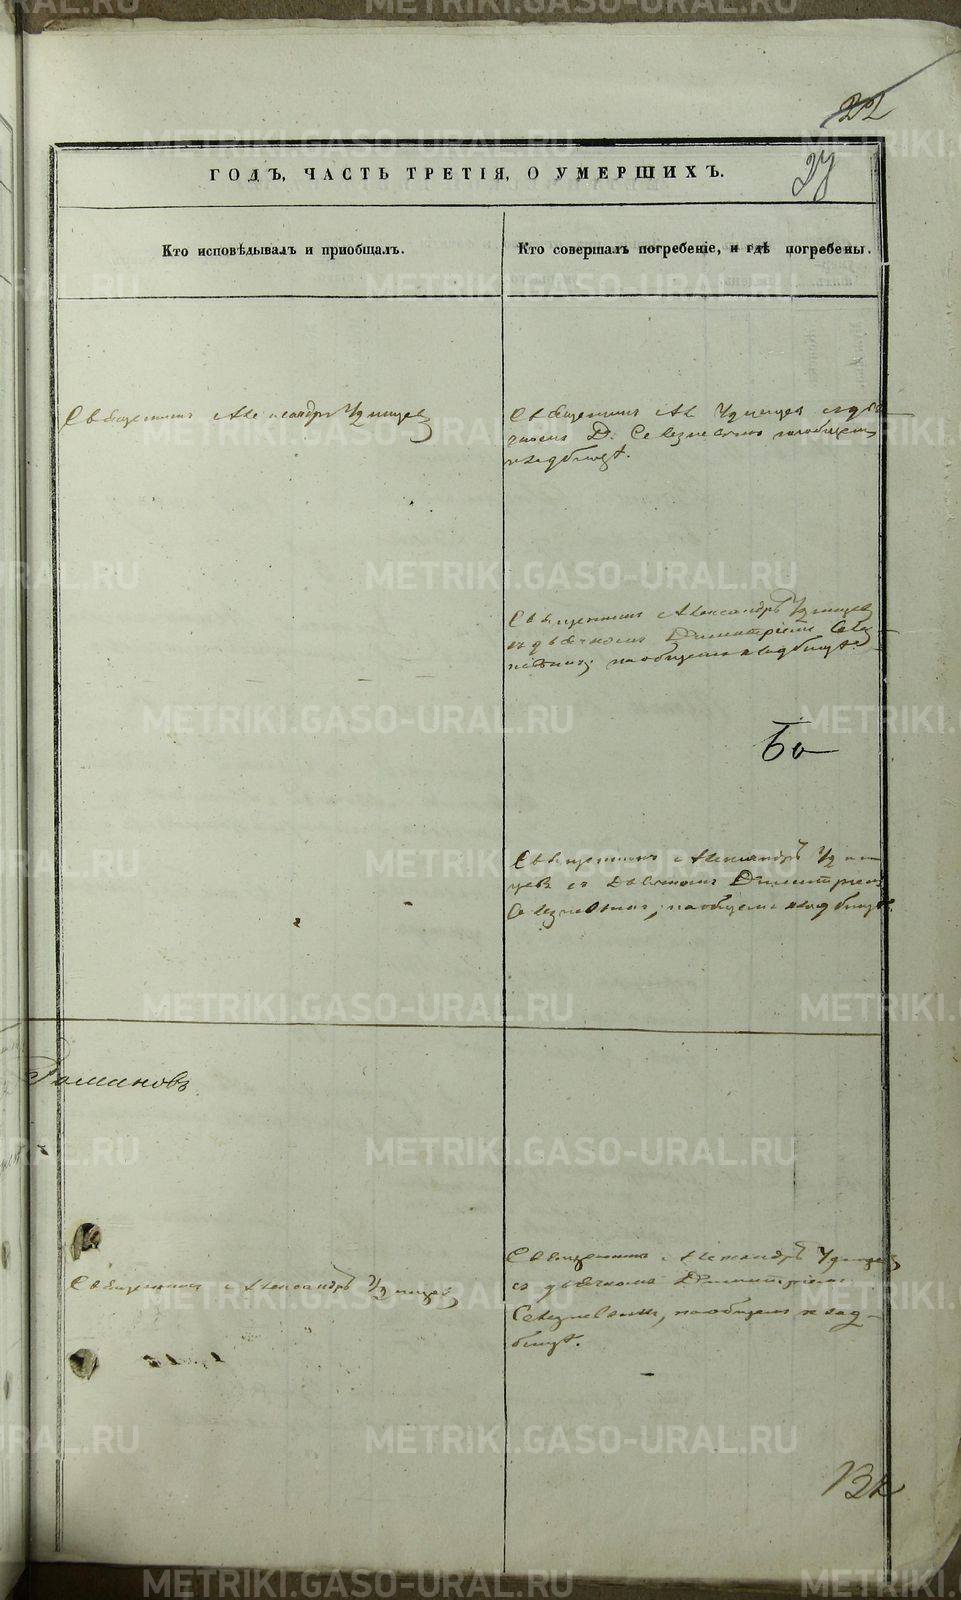 22
27
ГОДЪ, ЧАСТЬ ТРЕТІЯ, О УМЕРШИХЪ.
Кто исповѣдывалъ и приобщалъ.
Кто совершалъ погребеніе, и гдѣ погребены.
Священникъ Александръ Удинцев
Священникъ Ал Удинцев съ дья
чкомъ Д. Селезневымъ на общем
кладбищѣ.
Священникъ Александръ Удинцев
съ дьячкомъ Димитріемъ Селез
невымъ; на общемъ кладбищѣ.
Священникъ Александръ Удин
цевъ съ дьячкомъ Димитріемъ
Селезневымъ, на общемъ кладбищѣ.
Романовъ
Священникъ Александръ Удинцев
Священникъ Александръ Удинцев
съ дьячкомъ Димитріемъ
Селезневымъ, на общемъ клад-
бищѣ.
METRIKI.GASO-URAL.RU